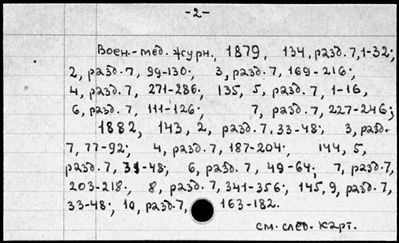 -2-
Воен.-мед. журн., 1879, 134, разд. 7, 1-32;
2, разд. 7, 99-130; 3, разд. 7, 169-216;
4, разд. 7, 271-286; 135, 5, разд. 7, 1-16,
6, разд. 7, 111-126; 7, разд. 7, 227-246;
1882, 143, 2, разд. 7, 33-48; 3, разд.
7, 77-92; 4, разд. 7, 187-204; 144, 5,
разд. 7, 31-48; 6, разд. 7, 49-64; 7, разд. 7,
203-218; 8, разд. 7, 341-356; 145, 9, разд. 7,
33-48; 10, разд. 7, 163-182.
см. след. карт.